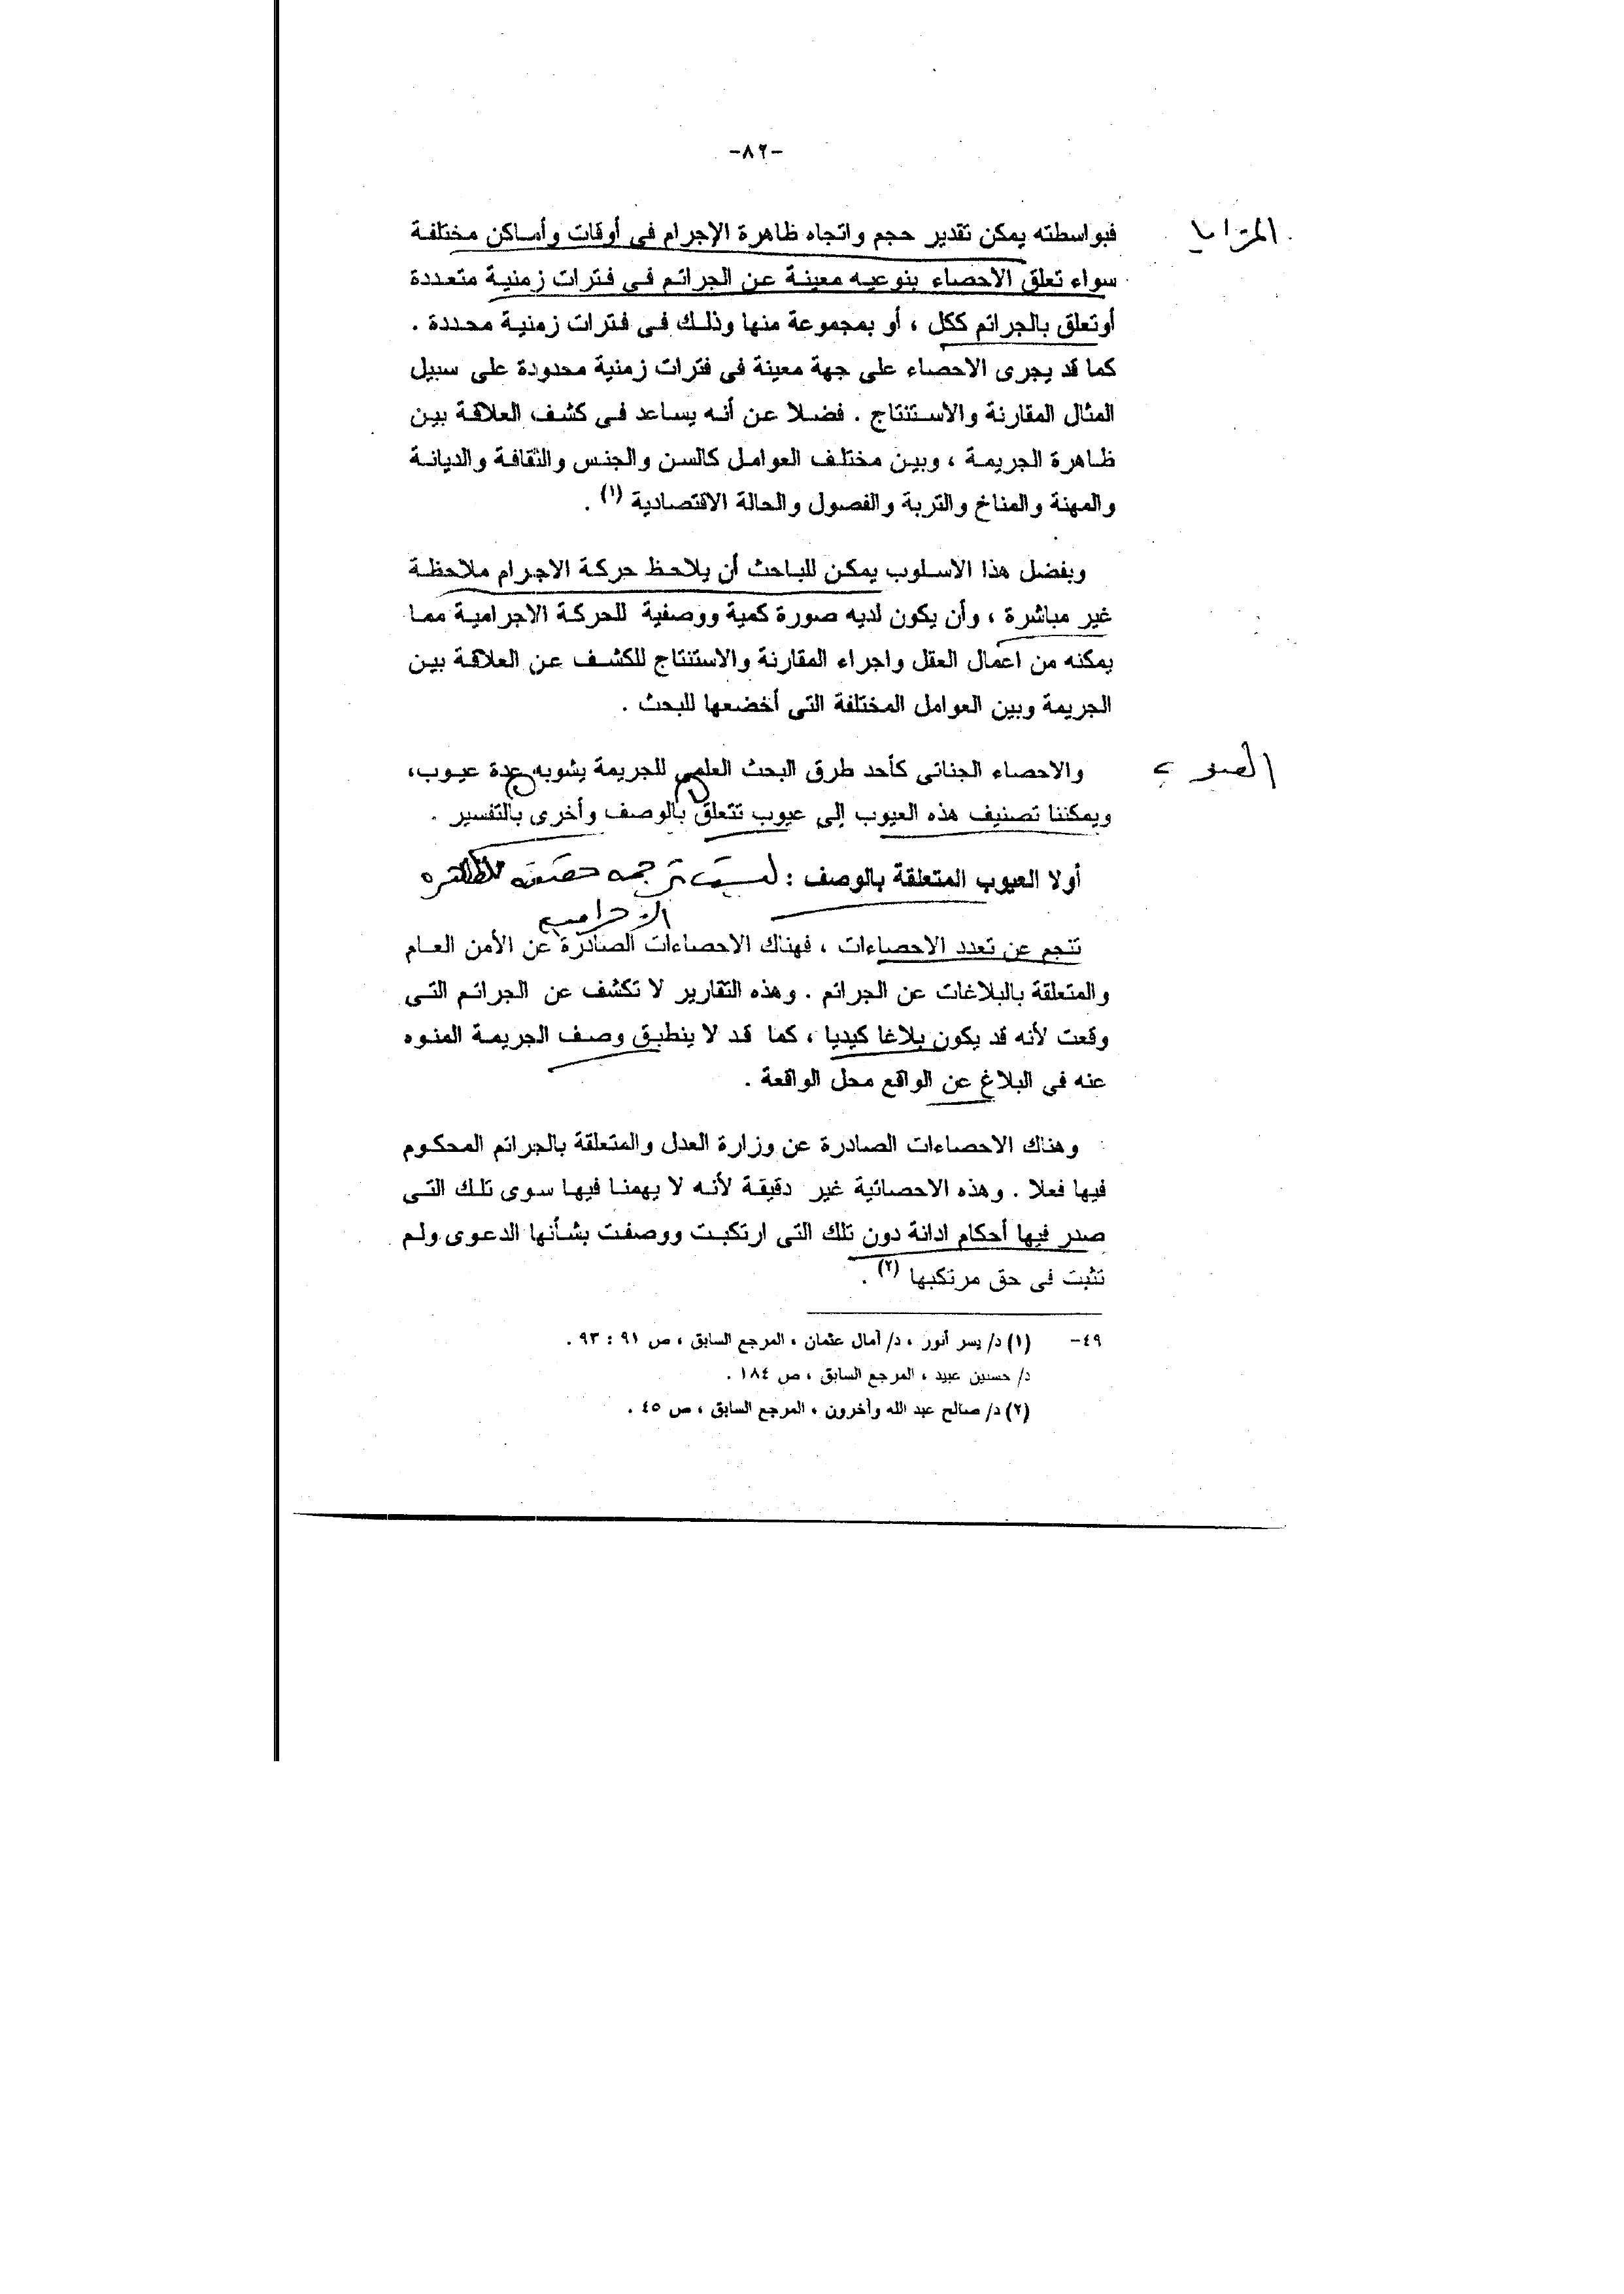 -٨٢-
المزايا
فبواسطته يمكن تقدير حجم واتجاه ظاهرة الإجرام فى أوقات وأماكن مختلفة
سواء تعلق الاحصاء بنوعيه معينة عن الجرائم فى فترات زمنية متعددة
أوتعلق بالجرائم ككل ، أو بمجموعة منها وذلك فى فترات زمنية محددة .
كما قد يجرى الاحصاء على جهة معينة فى فترات زمنية محدودة على سبيل
المثال المقارنة والاستنتاج . فضلا عن أنه يساعد فى كشف العلاقة بين
ظاهرة الجريمة ، وبين مختلف العوامل كالسن والجنس والثقافة والديانة
والمهنة والمناخ والتربة والفصول والحالة الاقتصادية (١) .
وبفضل هذا الاسلوب يمكن للباحث أن يلاحظ حركة الاجرام ملاحظة
غير مباشرة ، وأن يكون لديه صورة كمية ووصفية للحركة الاجرامية مما
يمكنه من اعمال العقل واجراء المقارنة والاستنتاج للكشف عن العلاقة بين
الجريمة وبين العوامل المختلفة التى أخضعها للبحث .
العيوب
والاحصاء الجنائى كأحد طرق البحث العلمى للجريمة يشوبه عدة عيوب،
ويمكننا تصنيف هذه العيوب إلى عيوب تتعلق بالوصف وأخرى بالتفسير .
أولا العيوب المتعلقة بالوصف : ليست ترجمه حقيقيه للظاهره
الإجراميه
تنجم عن تعدد الاحصاءات ، فهناك الاحصاءات الصادرة عن الأمن العام
والمتعلقة بالبلاغات عن الجرائم . وهذه التقارير لا تكشف عن الجرائم التى
وقعت لأنه قد يكون بلاغا كيديا ، كما قد لا ينطبق وصف الجريمة المنوه
عنه فى البلاغ عن الواقع محل الواقعة .
وهناك الاحصاءات الصادرة عن وزارة العدل والمتعلقة بالجرائم المحكوم
فيها فعلا . وهذه الاحصائية غير دقيقة لأنه لا يهمنا فيها سوى تلك التى
صدر فيها أحكام ادانة دون تلك التى ارتكبت ووصفت بشأنها الدعوى ولم
تثبت فى حق مرتكبها (٢) .
٤٩- (١) د/ يسر أنور ، د/ أمال عثمان ، المرجع السابق ، ص ٩١ : ٩٣ .
د/ حسنين عبيد ، المرجع السابق ، ص ١٨٤ .
(٢) د/ صالح عبد الله وأخرون ، المرجع السابق ، ص ٤٥ .